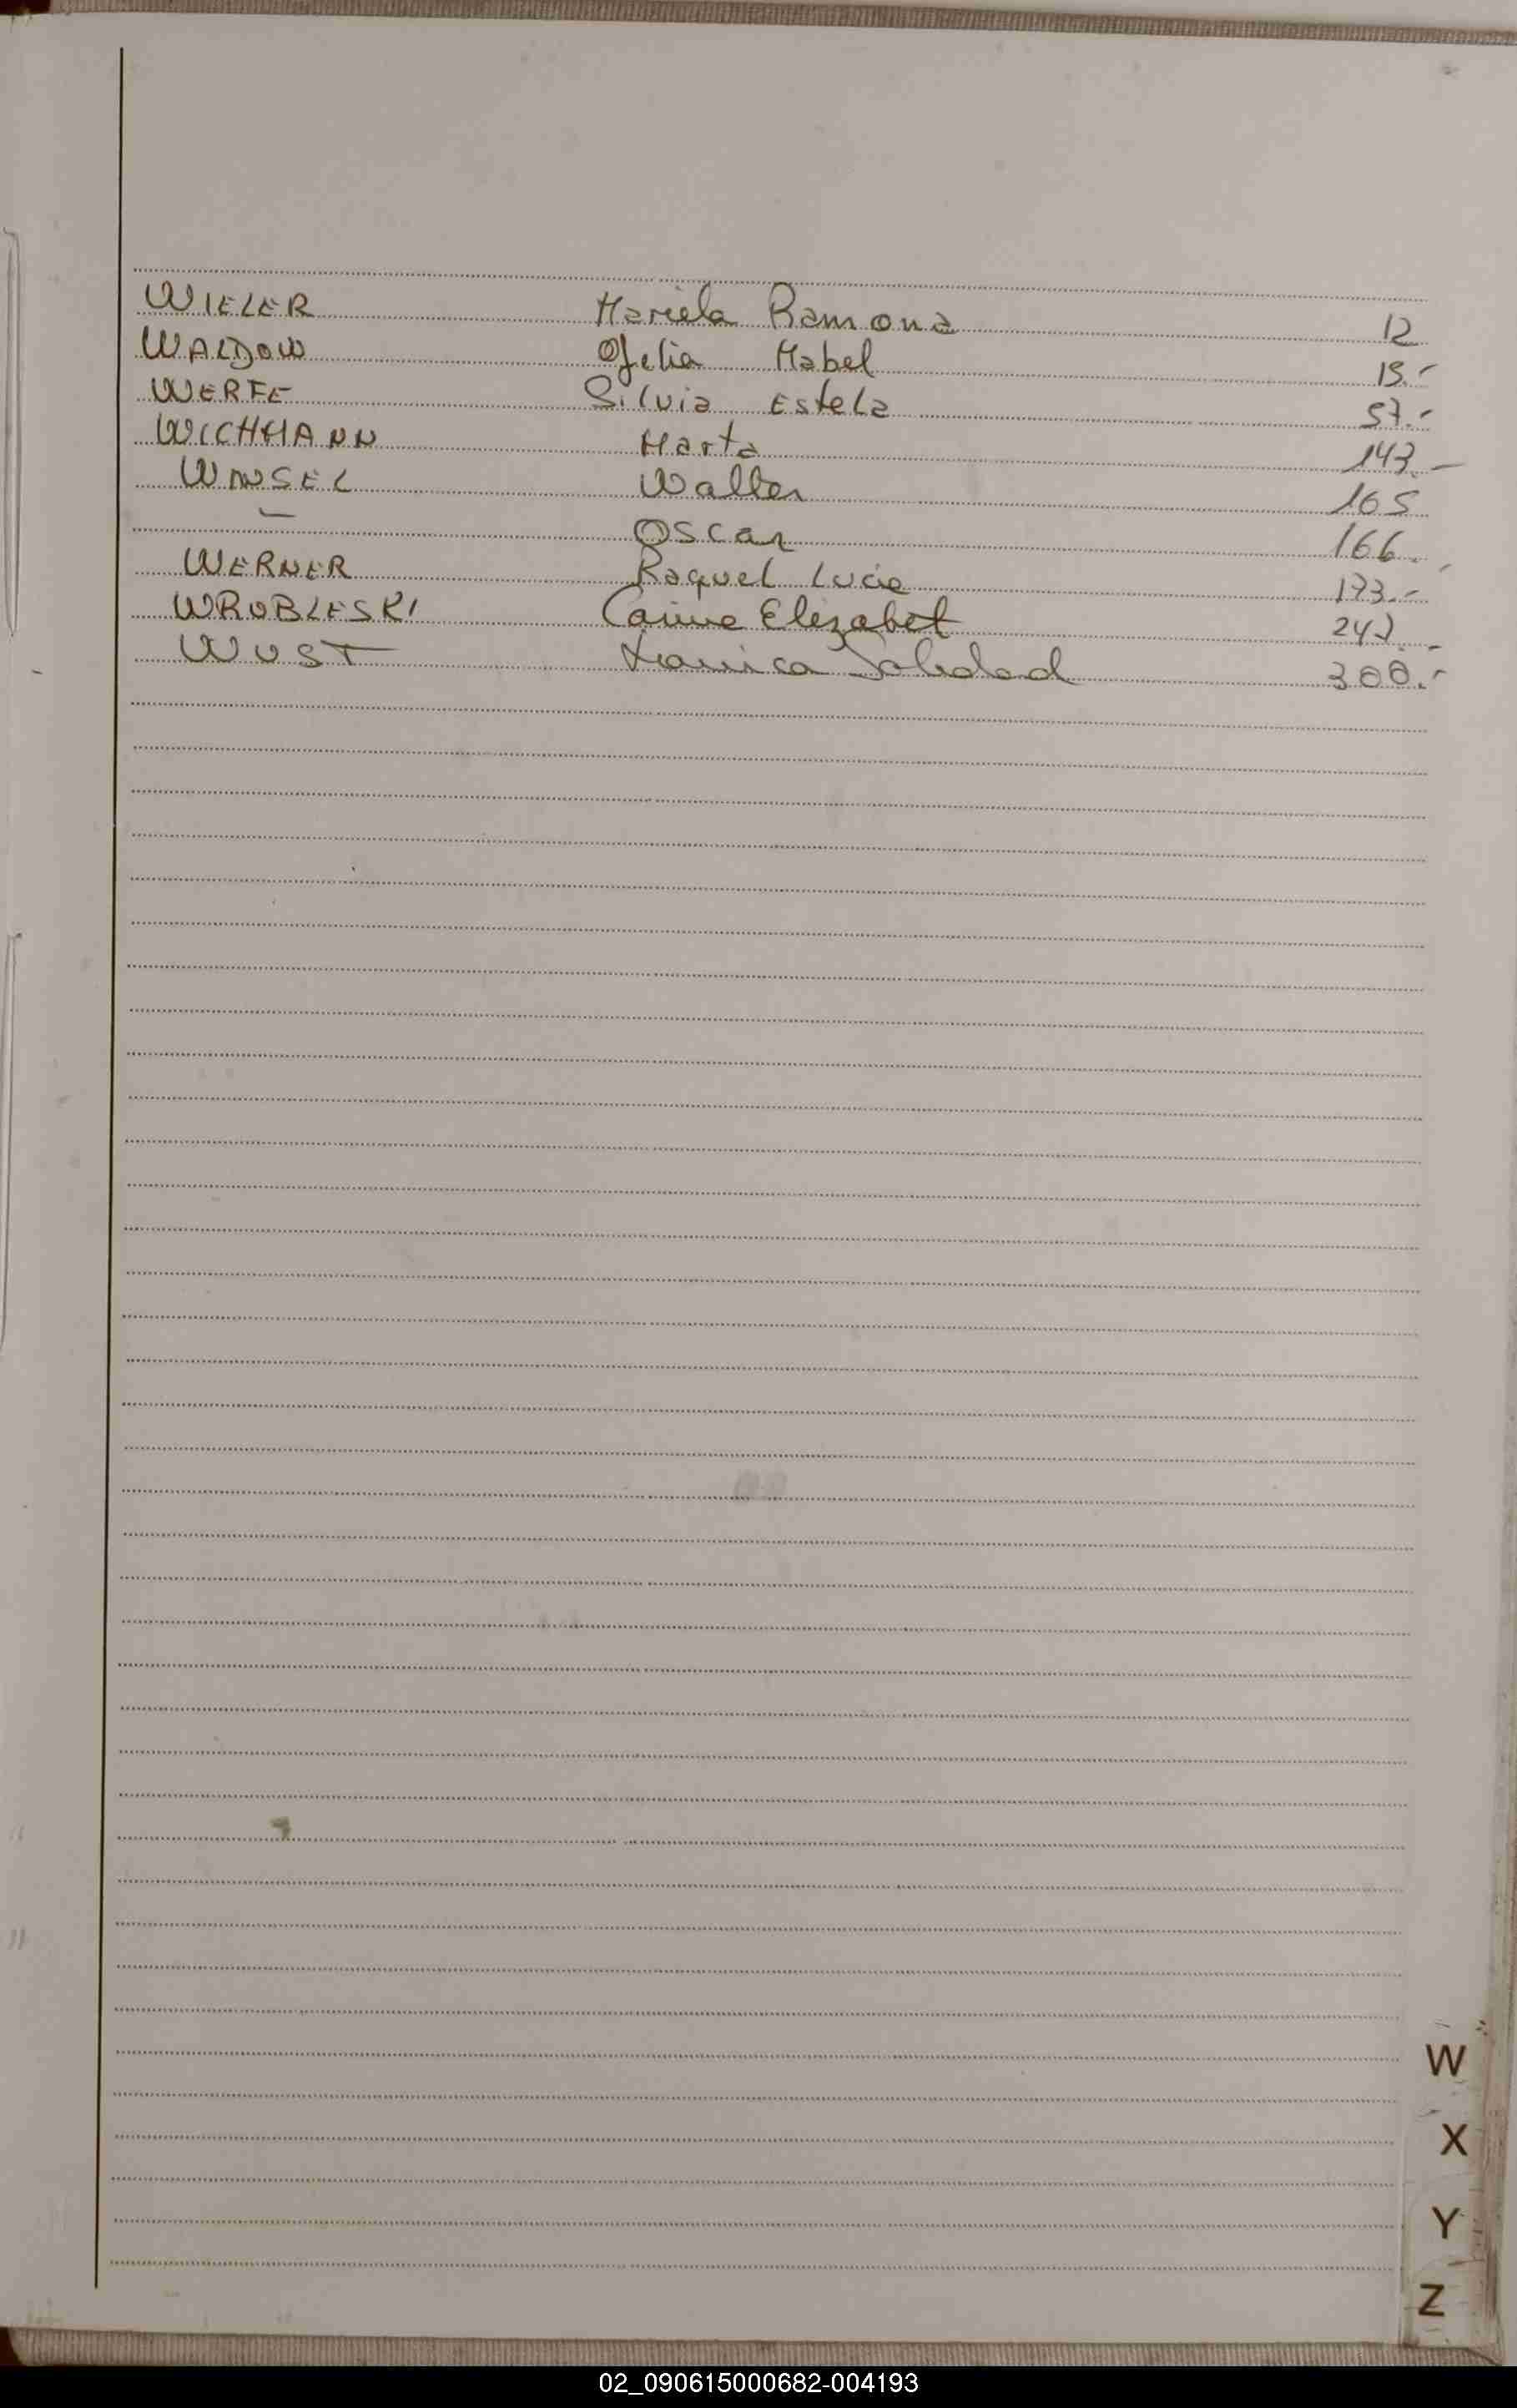 WIELER Mariela Ramona 12
WALDOW Ofelia Mabel 15.-
WERFE Silvia Estela 57.-
WICHMANN Marta 147.-
WINSEL Walter 165
- Oscar 166.
WERNER Raquel Lucia 173.-
WROBLESKI Carine Elizabet 247.-
WUST Soledad 300.-
W
X
Y
Z
02_090615000682-004193